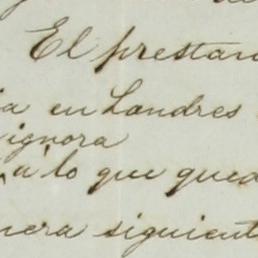 El prestam
ia en Londres
ignora
a lo que qued
nera siguient